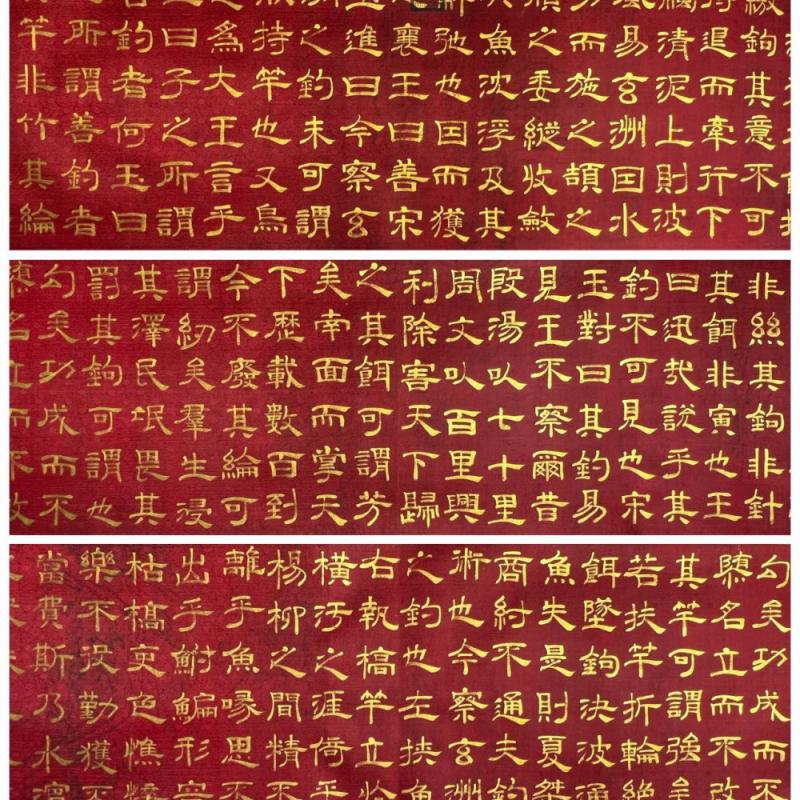 鉤其意不可
退而牽行下
清泥上則波
易玄洲因水
而施之頡之
之委縱收斂
魚沈浮及其
弛也因而獲
襄王曰善宋
進曰今察玄
之釣未可謂
持竿也又烏
為大王言乎
曰子之所謂
釣者何玉曰
所謂善釣者
竿非竹其綸
非絲其鉤非針
其餌非寅也王
曰迅哉說乎其
釣不可見也宋
玉對曰其釣易
見王不察爾昔
殷湯以七十里
周文以百里興
利除害天下歸
之其餌可謂芳
矣南面而掌天
下歷載數百到
今不廢其綸可
謂紉矣羣生浸
其澤民氓畏其
罰其鉤可謂也
勾矣功成而不
隳名立而不改
勾矣功成而不
隳名立而不改
其竿可謂強矣
若扶竿折輪絕
餌墜鉤決波涌
魚失是則夏桀
商紂不通夫釣
術也今察玄洲
之釣也左挾魚
右執槁竿立於
橫汙之涯倚乎
楊柳之間精不
離乎魚喙思不
出乎鮒鯿形容
枯槁吏色憔悴
樂不役勤獲不
當費斯乃水濱